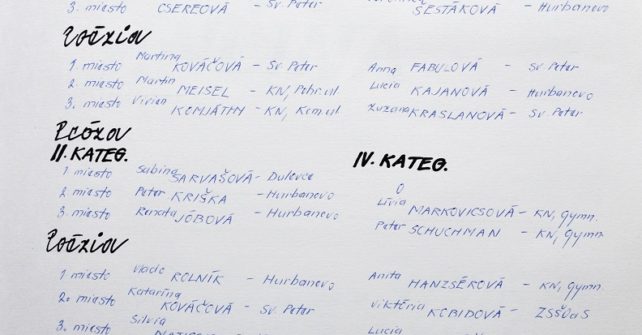 3. miesto CSEREOVÁ - Sv. Peter
ŠESTÁKOVÁ - Hurbanovo
Poézia
1. miesto Martina KOVÁČOVÁ - Sv. Peter
Anna FABULOVÁ - Sv. Peter
2. miesto Martin MEISEL - KN, Pohr. ul.
Lucia KAJANOVÁ - Hurbanovo
3. miesto Vivien KOMJÁTHY - KN, Kom. ul.
Zuzana KRASLANOVÁ - Sv. Peter
Próza
II. KATEG.
1 miesto Sabina SARVAŠOVÁ - Dulovce
2 miesto Peter KRIŠKA - Hurbanovo
3. miesto Renata JÓBOVÁ - Hurbanovo
IV. KATEG.
Lívia MARKOVICSOVÁ - KN, Gymn.
Peter SCHUCHMAN - KN, Gymn.
Poézia
1 miesto Vlado ROLNÍK - Hurbanovo
Anita HANZSÉROVÁ - KN, Gymn.
2. miesto Katarína KOVÁČOVÁ - Sv. Peter
Viktória KOBIDOVÁ - ZSŠOaS
3. miesto Silvia
Lucia